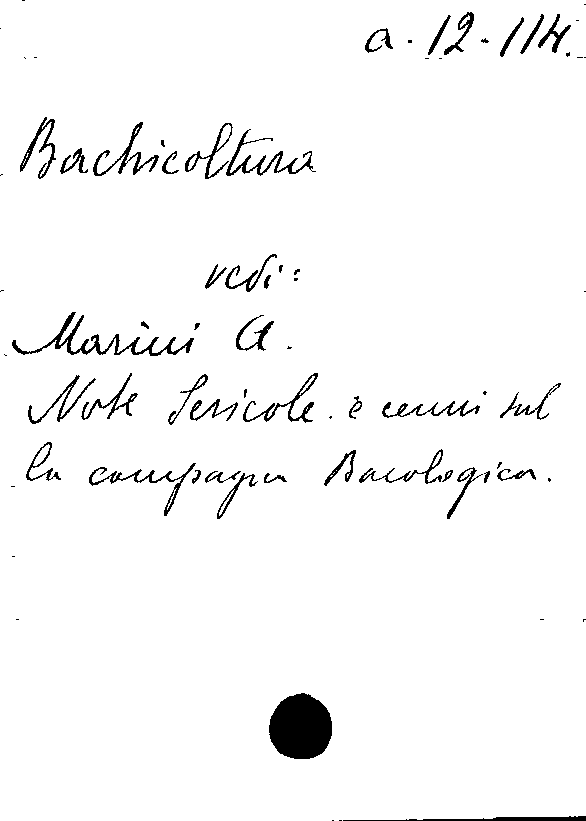 a. 12. 114.
Bachicoltura
vedi:
Marini A.
Note Sericole. e cenni sul
la campagna Bacologica.